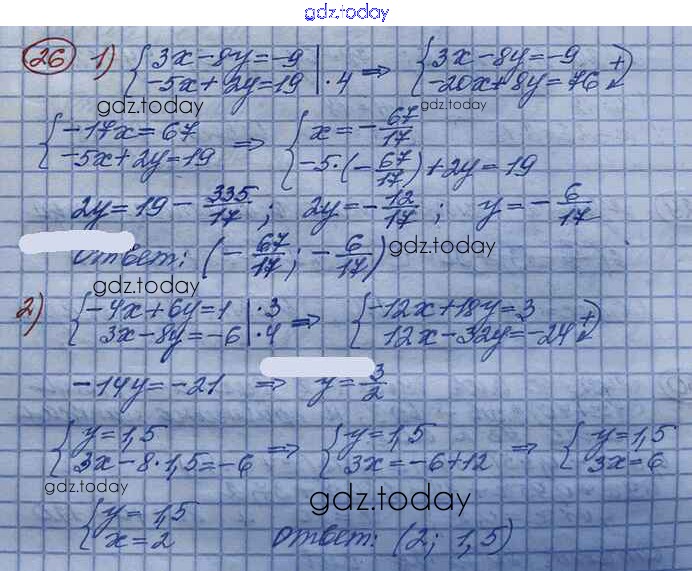 gdz.today
26 1) { 3x-8y=-9 -5x+2y=19 | ·4 ⇒ { 3x-8y=-9 -20x+8y=76 +
gdz.today gdz.today
{ -17x=67 -5x+2y=19 ⇒ { x=-67/17 -5·(-67/17)+2y=19
2y=19-335/17; 2y=-12/17; y=-6/17
Ответ: (-67/17; -6/17) gdz.today
gdz.today
2) { -4x+6y=1 | ·3 3x-8y=-6 | ·4 ⇒ { -12x+18y=3 12x-32y=-24 +
-14y=-21 ⇒ y=3/2
{ y=1,5 3x-8·1,5=-6 ⇒ { y=1,5 3x=-6+12 ⇒ { y=1,5 3x=6
gdz.today gdz.today
{ y=1,5 x=2 Ответ: (2; 1,5)